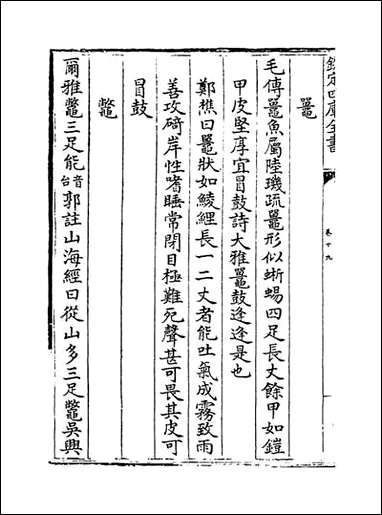 欽定四庫全書
卷十九
鼉
毛傳鼉魚屬陸璣疏鼉形似蜥蜴四足長丈餘甲如鎧
甲皮堅厚宜冒鼓詩大雅鼉鼓逢逢是也
鄭樵曰鼉狀如鯪鯉長一二丈者能吐氣成霧致雨
善攻碕岸性嗜睡常閉目極難死聲甚可畏其皮可
冒鼓
鼈
爾雅鼈三足能音台郭註山海經曰從山多三足鼈吳興